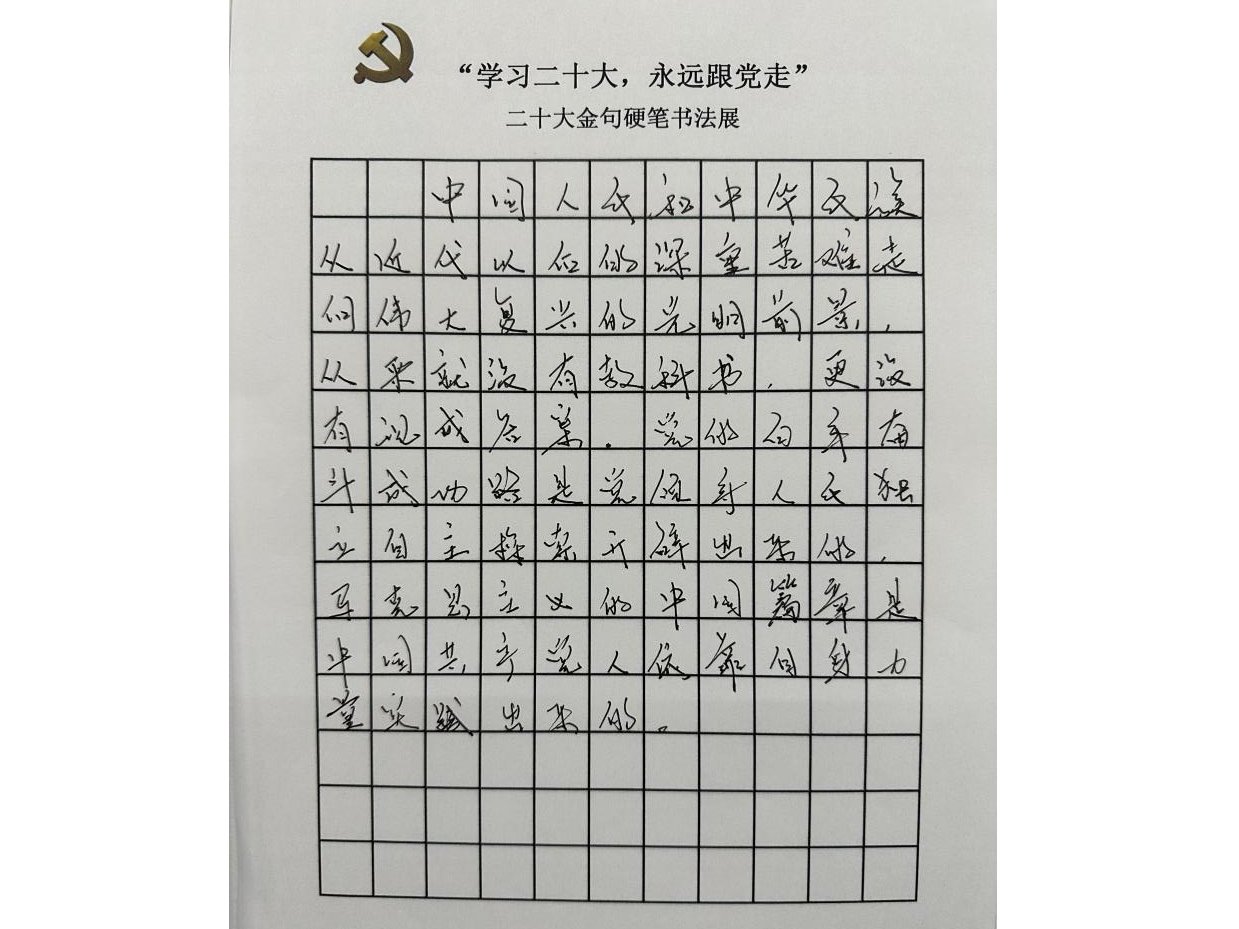 “学习二十大，永远跟党走”
二十大金句硬笔书法展
中国人民和中华民族
从近代以后的深重苦难走
向伟大复兴的光明前景，
从来就没有教科书，更没
有现成答案。党的百年奋
斗成功道路是党领导人民独
立自主探索开辟出来的，
马克思主义的中国篇章是
中国共产党人依靠自身力
量实践出来的。